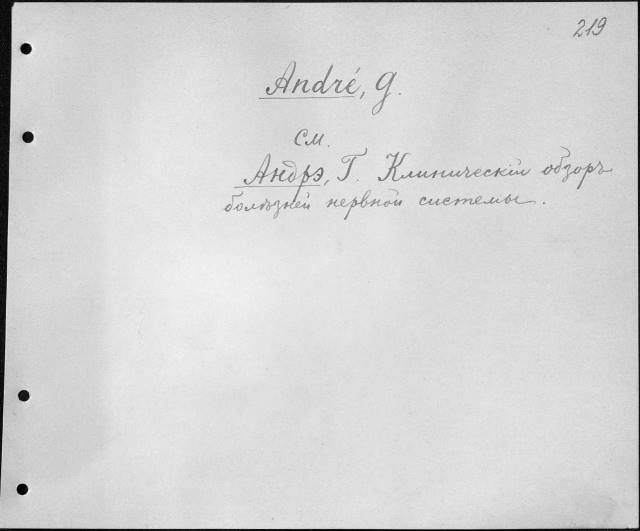 219
André, G.
см.
Андрэ, Г. Клиническій обзоръ
болѣзней нервной системы.